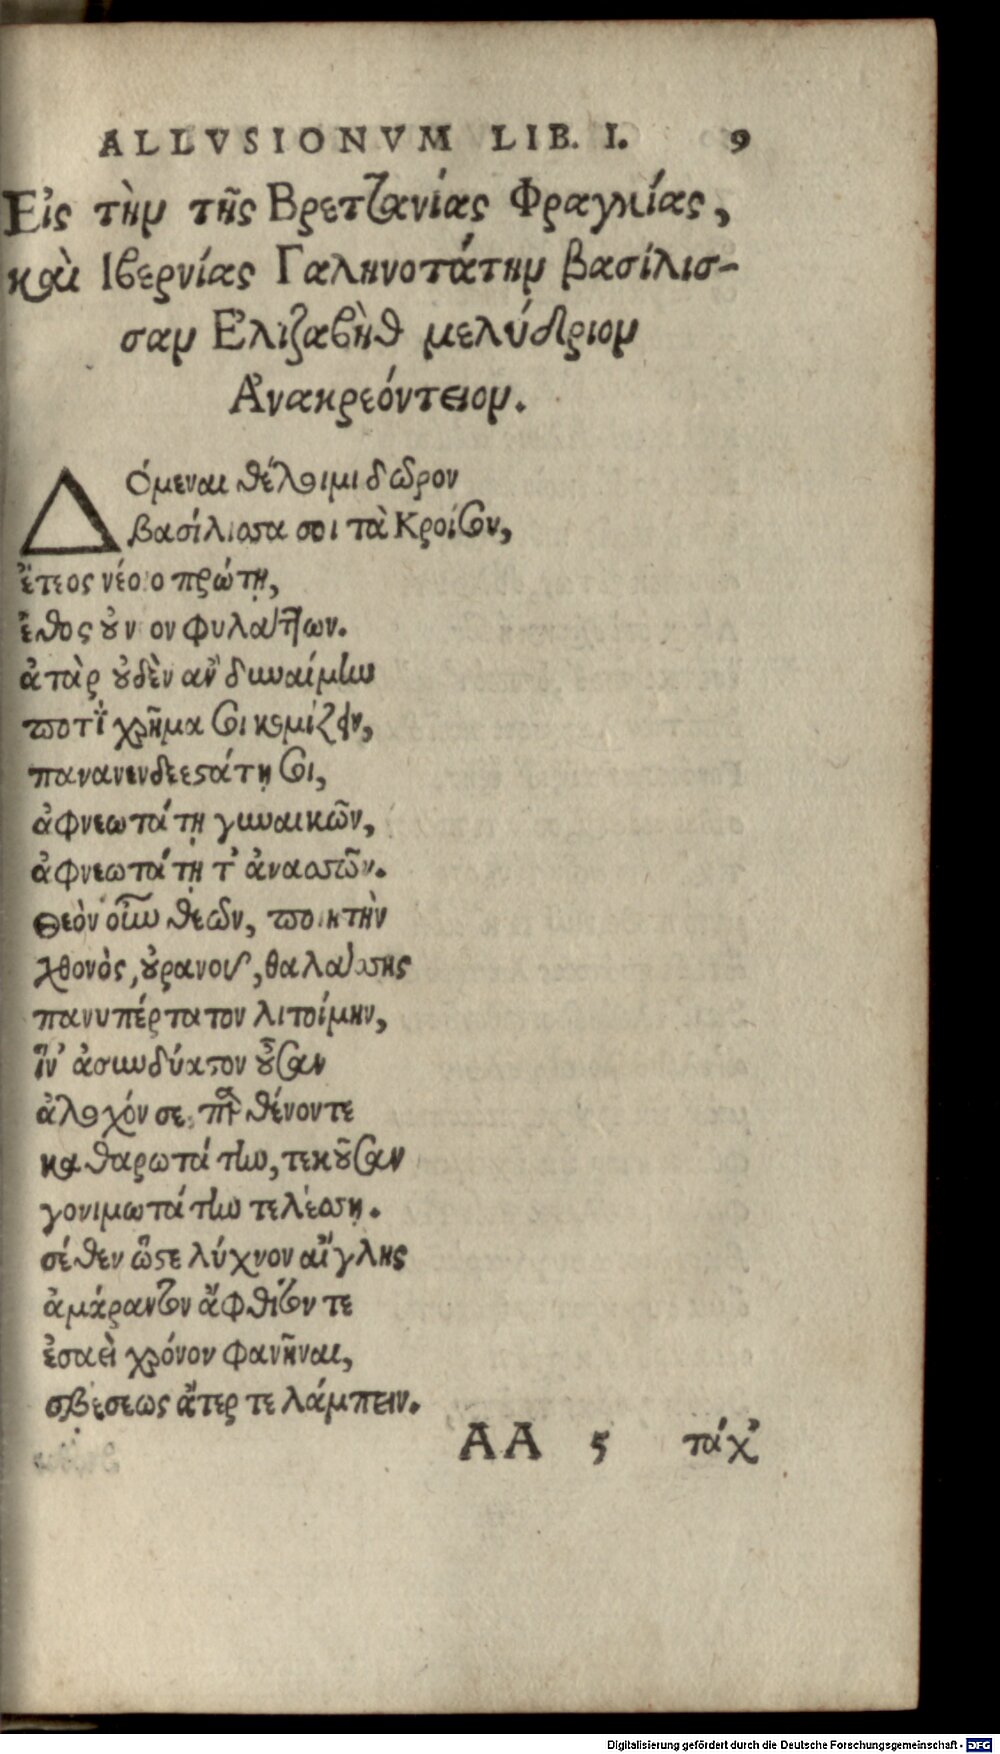 ALLVSIONVM LIB. I. 9
Εἰς τὴν τῆς Βρετζανίας Φραγκίας,
καὶ Ιβερνίας Γαληνοτάτην βασίλισ-
σαν Ἐλιζαβὴθ μελύδριον
Ἀνακρεόντειον.
Δόμεναι θέλοιμι δῶρον
βασίλισσα σοι τὰ Κροίσου,
ἔτεος νέοιο πρώτῃ,
ἔθος οὖν ὃν φυλάττων.
ἀτὰρ οὐδὲν ἂν δυναίμην
ποτὶ χρῆμα σοι κομίζειν,
πανανενδεεστάτῃ σοι,
ἀφνεωτάτῃ γυναικῶν,
ἀφνεωτάτῃ τ' ἀνασσῶν.
Θεὸν οὖν θεῶν, ποιητὴν
χθονὸς, οὐρανοῦ, θαλάσσης
πανυπέρτατον λιτοίμην,
ἵν' ἀσυνδύαστον οὖσαν
ἀλοχόν σε, παρθένον τε
καθαρωτάτην, τεκοῦσαν
γονιμωτάτην τελέσσῃ.
σέθεν ὥστε λύχνον αἴγλης
ἀμάραντον ἄφθιτόν τε
ἐσαεὶ χρόνον φανῆναι,
σβέσεως ἄτερ τε λάμπειν.
AA 5 τάχ'
Digitalisierung gefördert durch die Deutsche Forschungsgemeinschaft - DFG